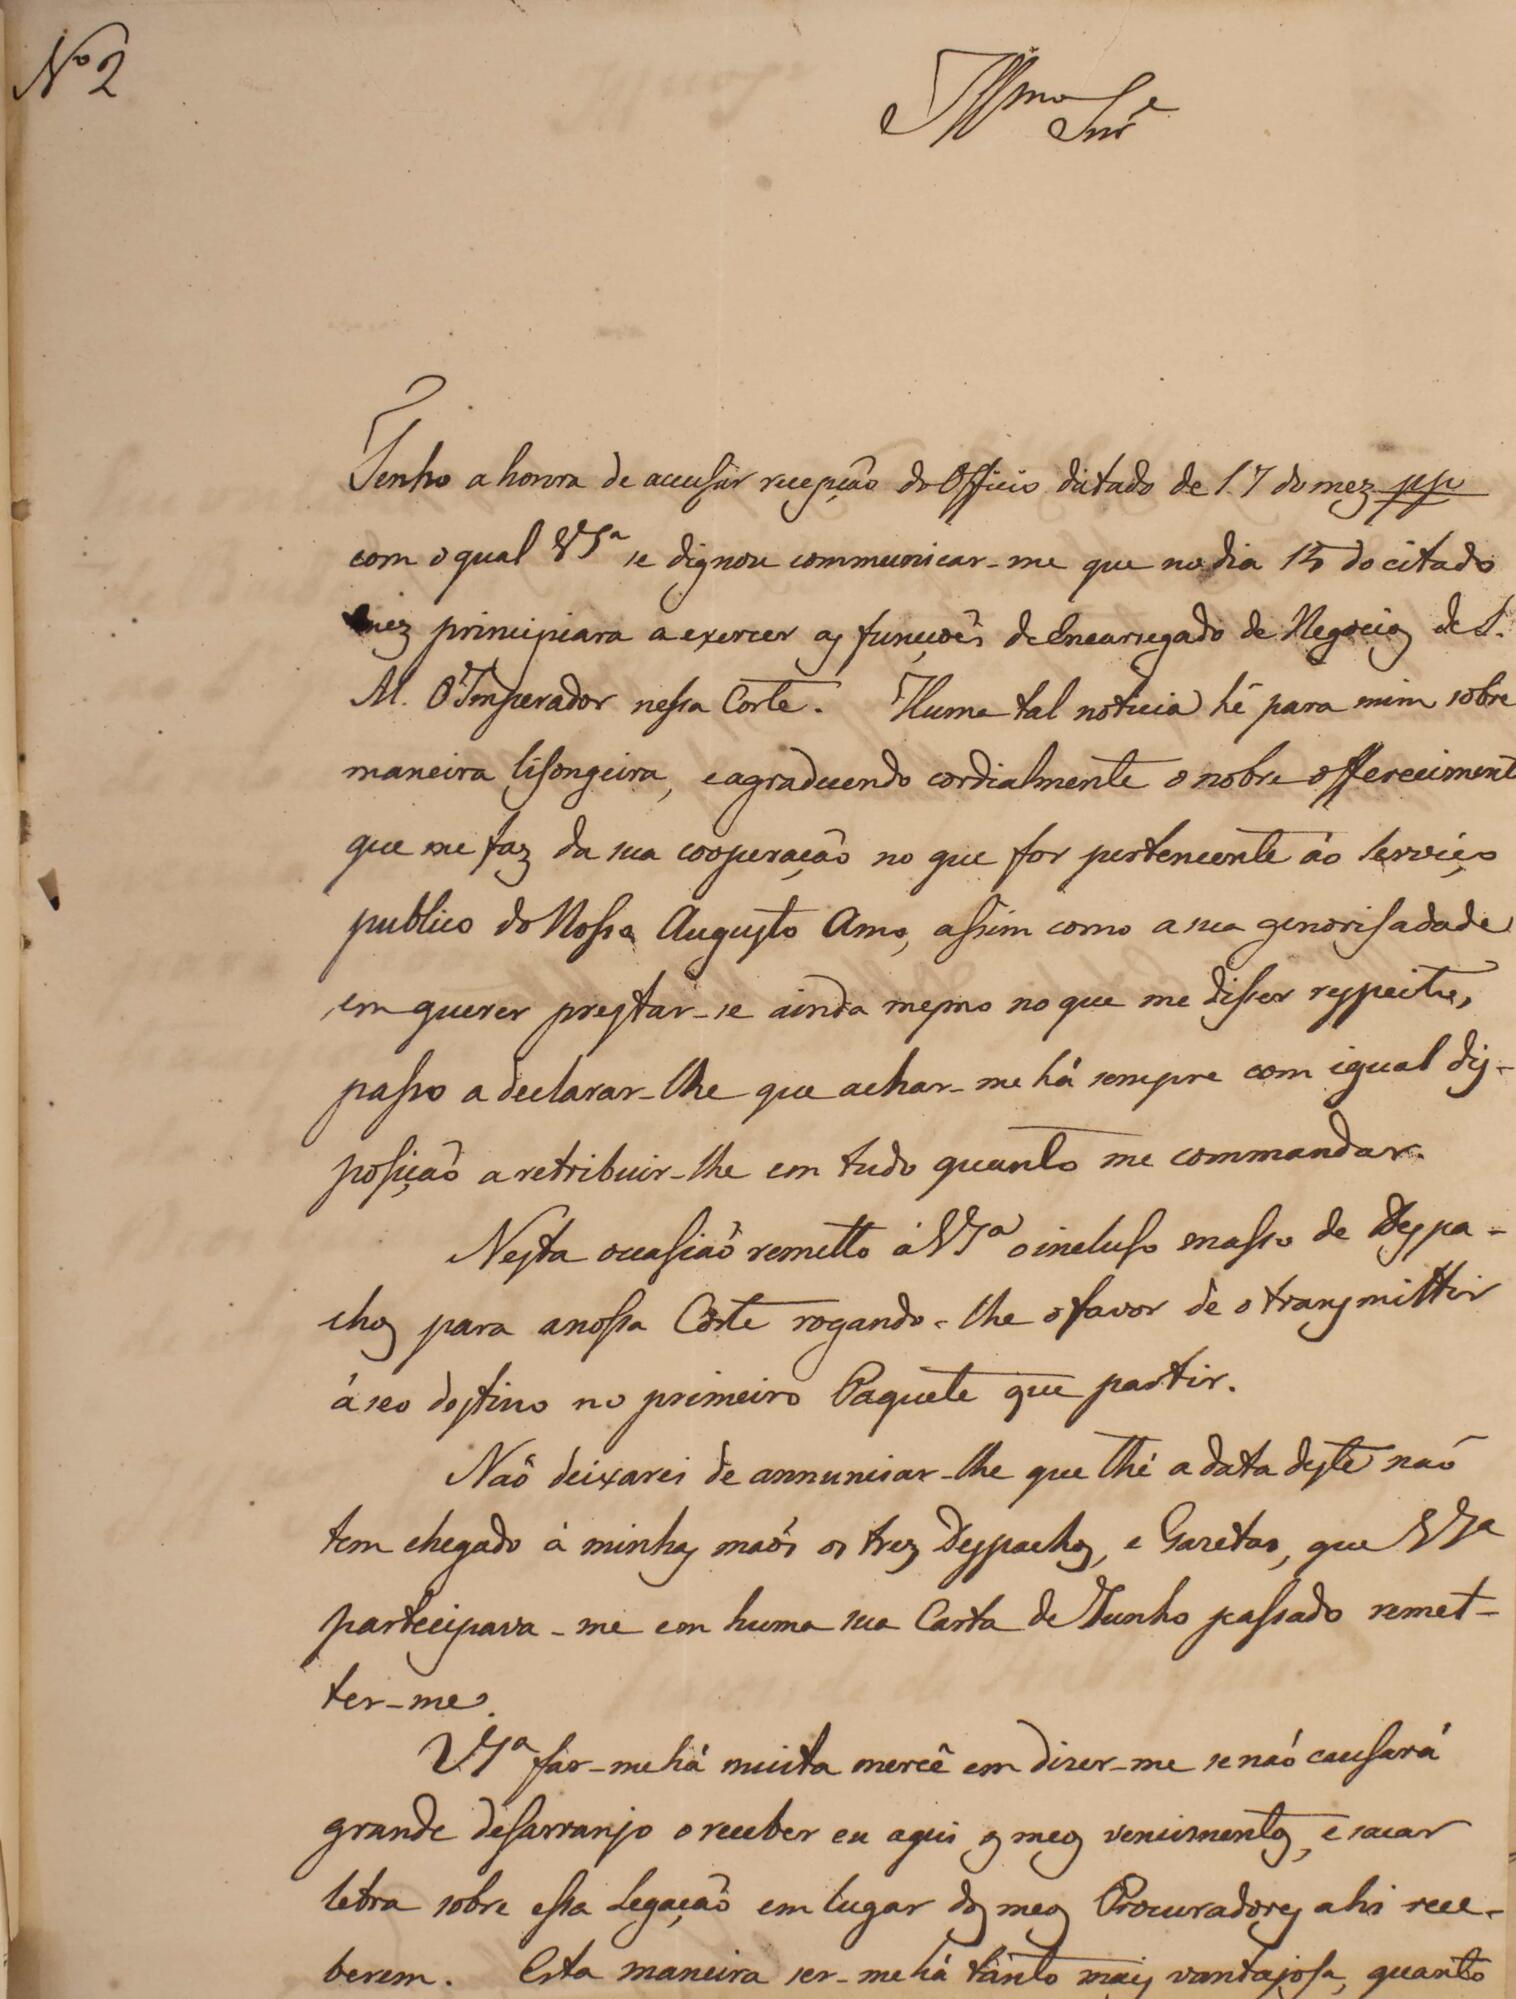 Nº 2
Illmo Snr.e
Tenho a honra de accusar recepção do Officio datado de 17 do mez pp
com o qual VSª se dignou communicar-me que no dia 15 do citado
mez principiara a exercer as funcçoês de Encarregado de Negocios de S.
M. O Imperador nessa Corte. Huma tal noticia hé para mim sobre
maneira lisongeira, e agradecendo cordialmente o nobre offereciment
que me faz da sua cooperação no que for pertencente áo serviço
publico do Nosso Augusto Amo, assim como a sua genorisadade
em querer prestar-se ainda mesmo no que me disser respeito,
passo a declarar-lhe que achar-me há sempre com igual dis-
posição a retribuir-lhe em tudo quanto me commandar.
Nesta occasiaõ remetto á VSª o incluso masso de Despa-
chos para a nossa Corte rogando-lhe o favor de o transmittir
á seo destino no primeiro Paquete que partir.
Naõ deixarei de annunciar-lhe que thé a data deste naõ
tem chegado á minhas maõs os trez Despachos, e Gazetas, que VSª
participava-me em huma sua Carta de Junho passado remet-
ter-me.
VSª far-me há muita mercê em dizer-me se naó causará
grande desarranjo o receber eu aqui os meos vencimentos, e sacar
letra sobre essa Legação em lugar dos meos Procuradores ahi rece-
berem. Esta maneira ser-me há tanto mais vantajosa, quanto